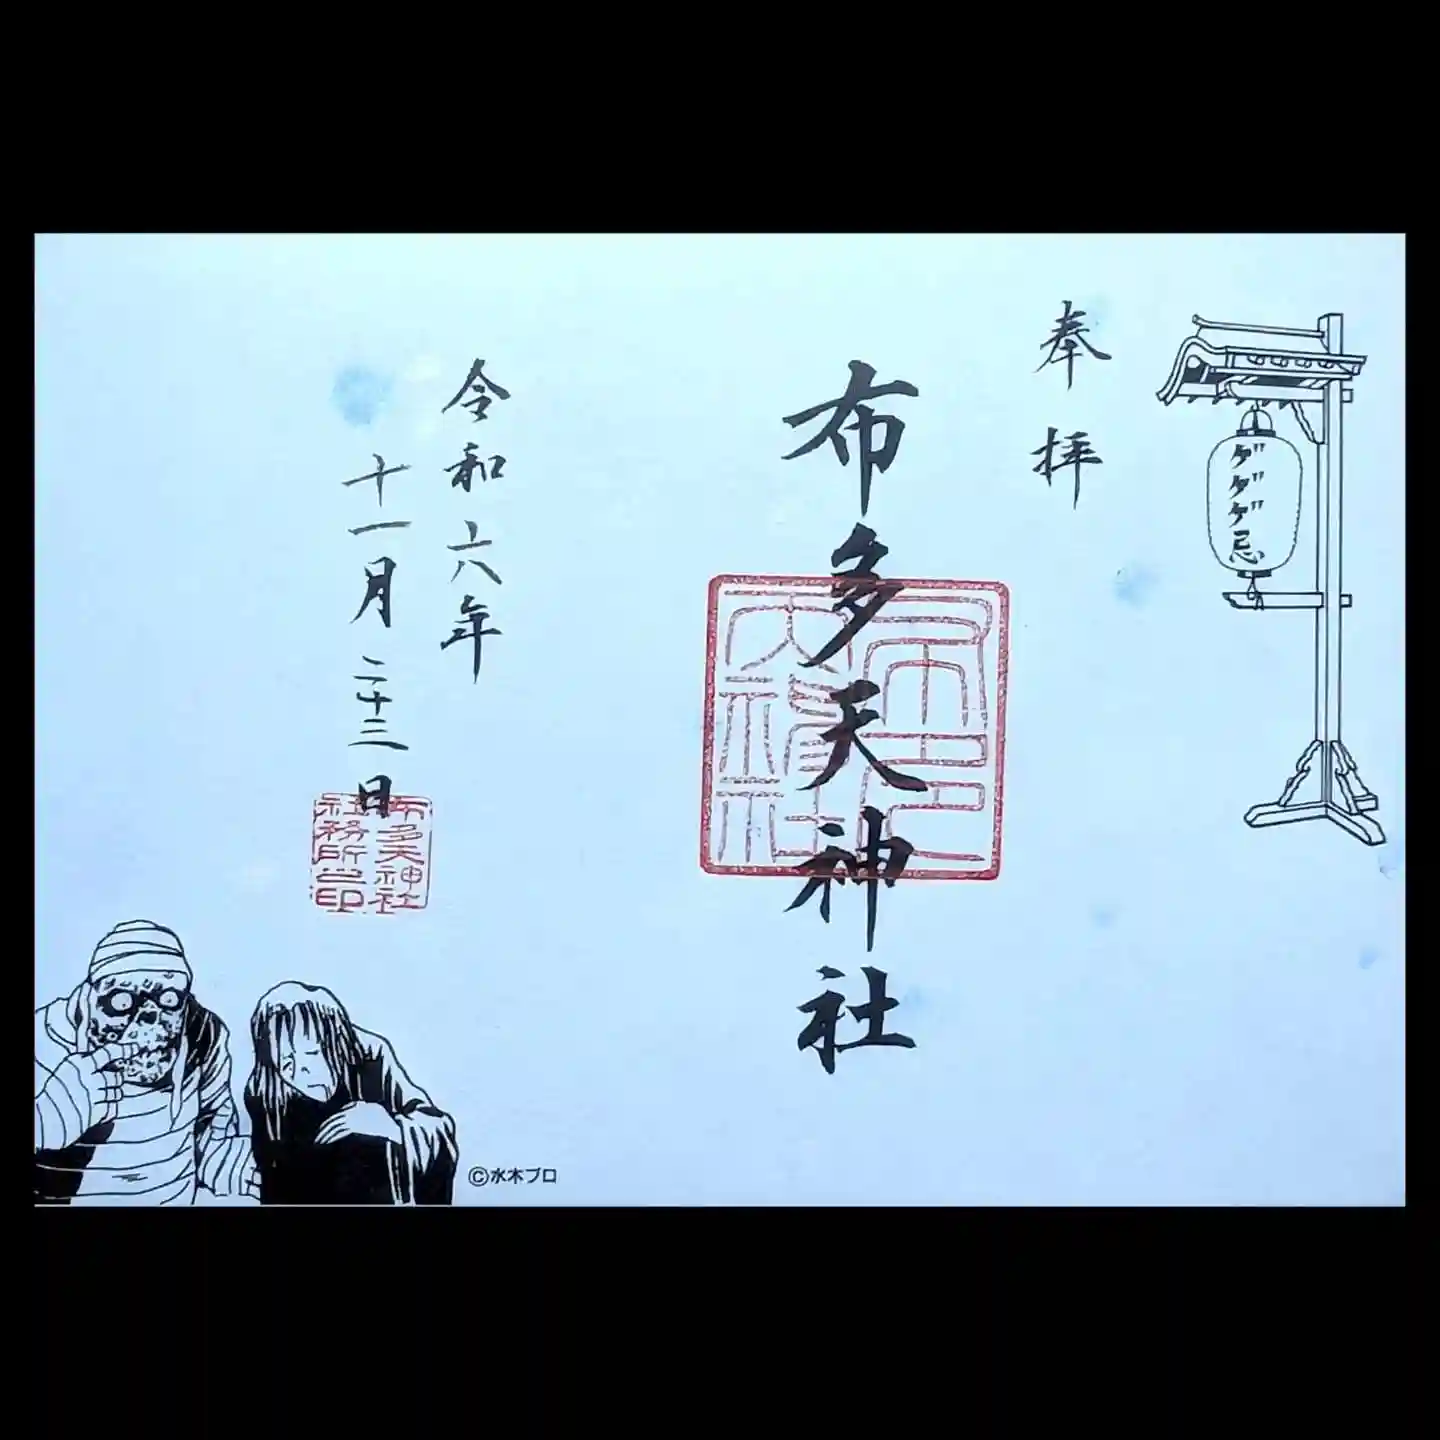 ゲゲゲ忌
奉拝
布多天神社
布多天神社
令和六年
十一月二十三日
布多天神社
社務所之印
©水木プロ